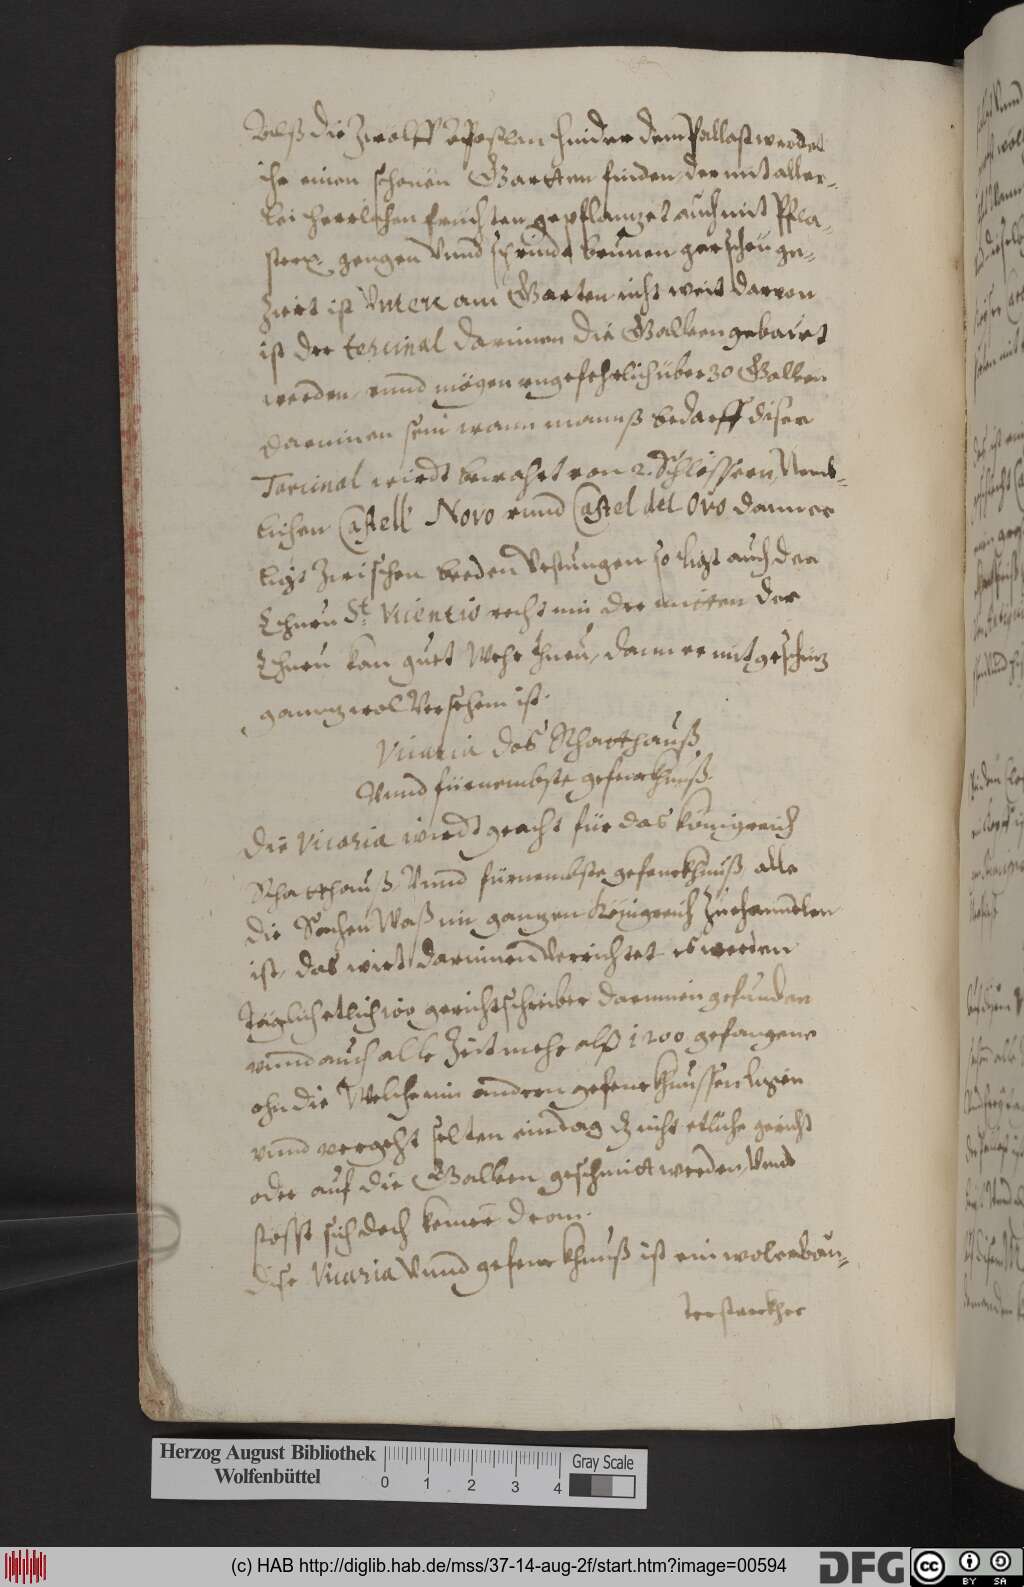 Alß die Zwölff Aposlen hinder dem Pallast werdet
ihr einen schönen Gartten finden, der mit aller-
lei herrlichen früchten gepflantzet auch mit Pfla-
ster gengen Vnnd sprindt brunen gescheu ge-
Ziert ist Vnten am Garten nicht weit darvon
ist der tercinal darinnen die Galleen gebauet
werden, vnnd mögen vngefehrlich über 30 Galleen
darinnen sein wann manß bedarff diser
Tarcinal wirdt bewahrt von 2. Schlössern, Nemb-
lichen Castell Novo vnnd Castel del Ovo dann es
ligt Zwischen beeden Vestungen so ligt auch der
Thurn St. Vicentio recht in der mitten der
Thurn kan guet Wehr thuen, dann er mit geschütz
gantz wol Versehen ist.
Vicaria das Rhatthauß
Vnnd fürnembste gefenckhnuß.
Die Vicaria wirdt geacht für das königreich
Rhatthauß, Vnnd fürnembste gefenckhnuß alle
die Sachen Waß im gantzen Königreich Zuehanndlen
ist, das wirt darinnen Verrichtet es werden
täglich etlich 100 gerichtschreiber darinnen gefunden
vnnd auch alle Zeit mehr alß 1200 gefangene
ohn die Welche in andern gefenckhnussen ligen
vnnd vergeht selten ein tag dz nicht etliche gericht
oder auf die Galleen geschmitt werden, Vnnd
stosst sich doch keiner dran.
Dise Vicaria Vnnd gefenckhnuß ist ein wolerbau-
ter starckher
Herzog August Bibliothek
Wolfenbüttel
0 1 2 3 4
Gray Scale
(c) HAB http://diglib.hab.de/mss/37-14-aug-2f/start.htm?image=00594
DFG
cc BY SA